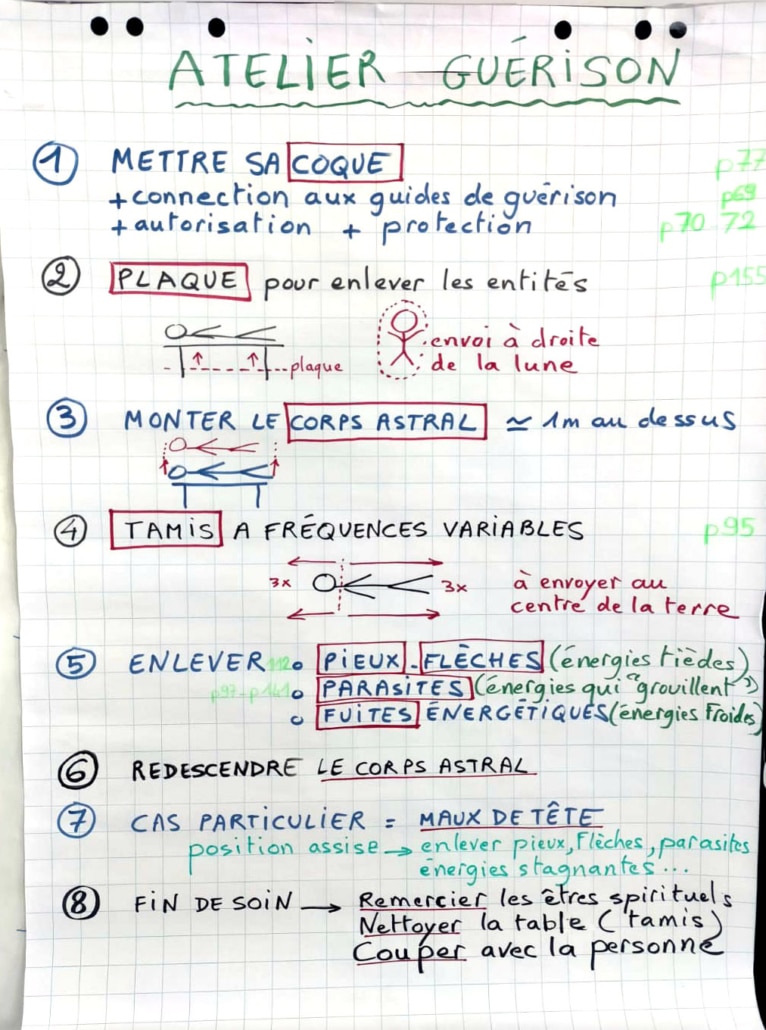 ATELIER GUÉRISON
1 METTRE SA COQUE p77
+ connection aux guides de guérison p69
+ autorisation + protection p70 72
2 PLAQUE pour enlever les entités p155
envoi à droite
plaque de la lune
3 MONTER LE CORPS ASTRAL ≃ 1m au dessus
4 TAMIS A FRÉQUENCES VARIABLES p95
3x 3x à envoyer au
centre de la terre
5 ENLEVER 112 o PIEUX - FLÈCHES (énergies tièdes)
p97-p141 o PARASITES (énergies qui "grouillent")
o FUITES ÉNERGÉTIQUES (énergies froides)
6 REDESCENDRE LE CORPS ASTRAL
7 CAS PARTICULIER = MAUX DE TÊTE
position assise → enlever pieux, flèches, parasites
énergies stagnantes...
8 FIN DE SOIN → Remercier les êtres spirituels
Nettoyer la table (tamis)
Couper avec la personne